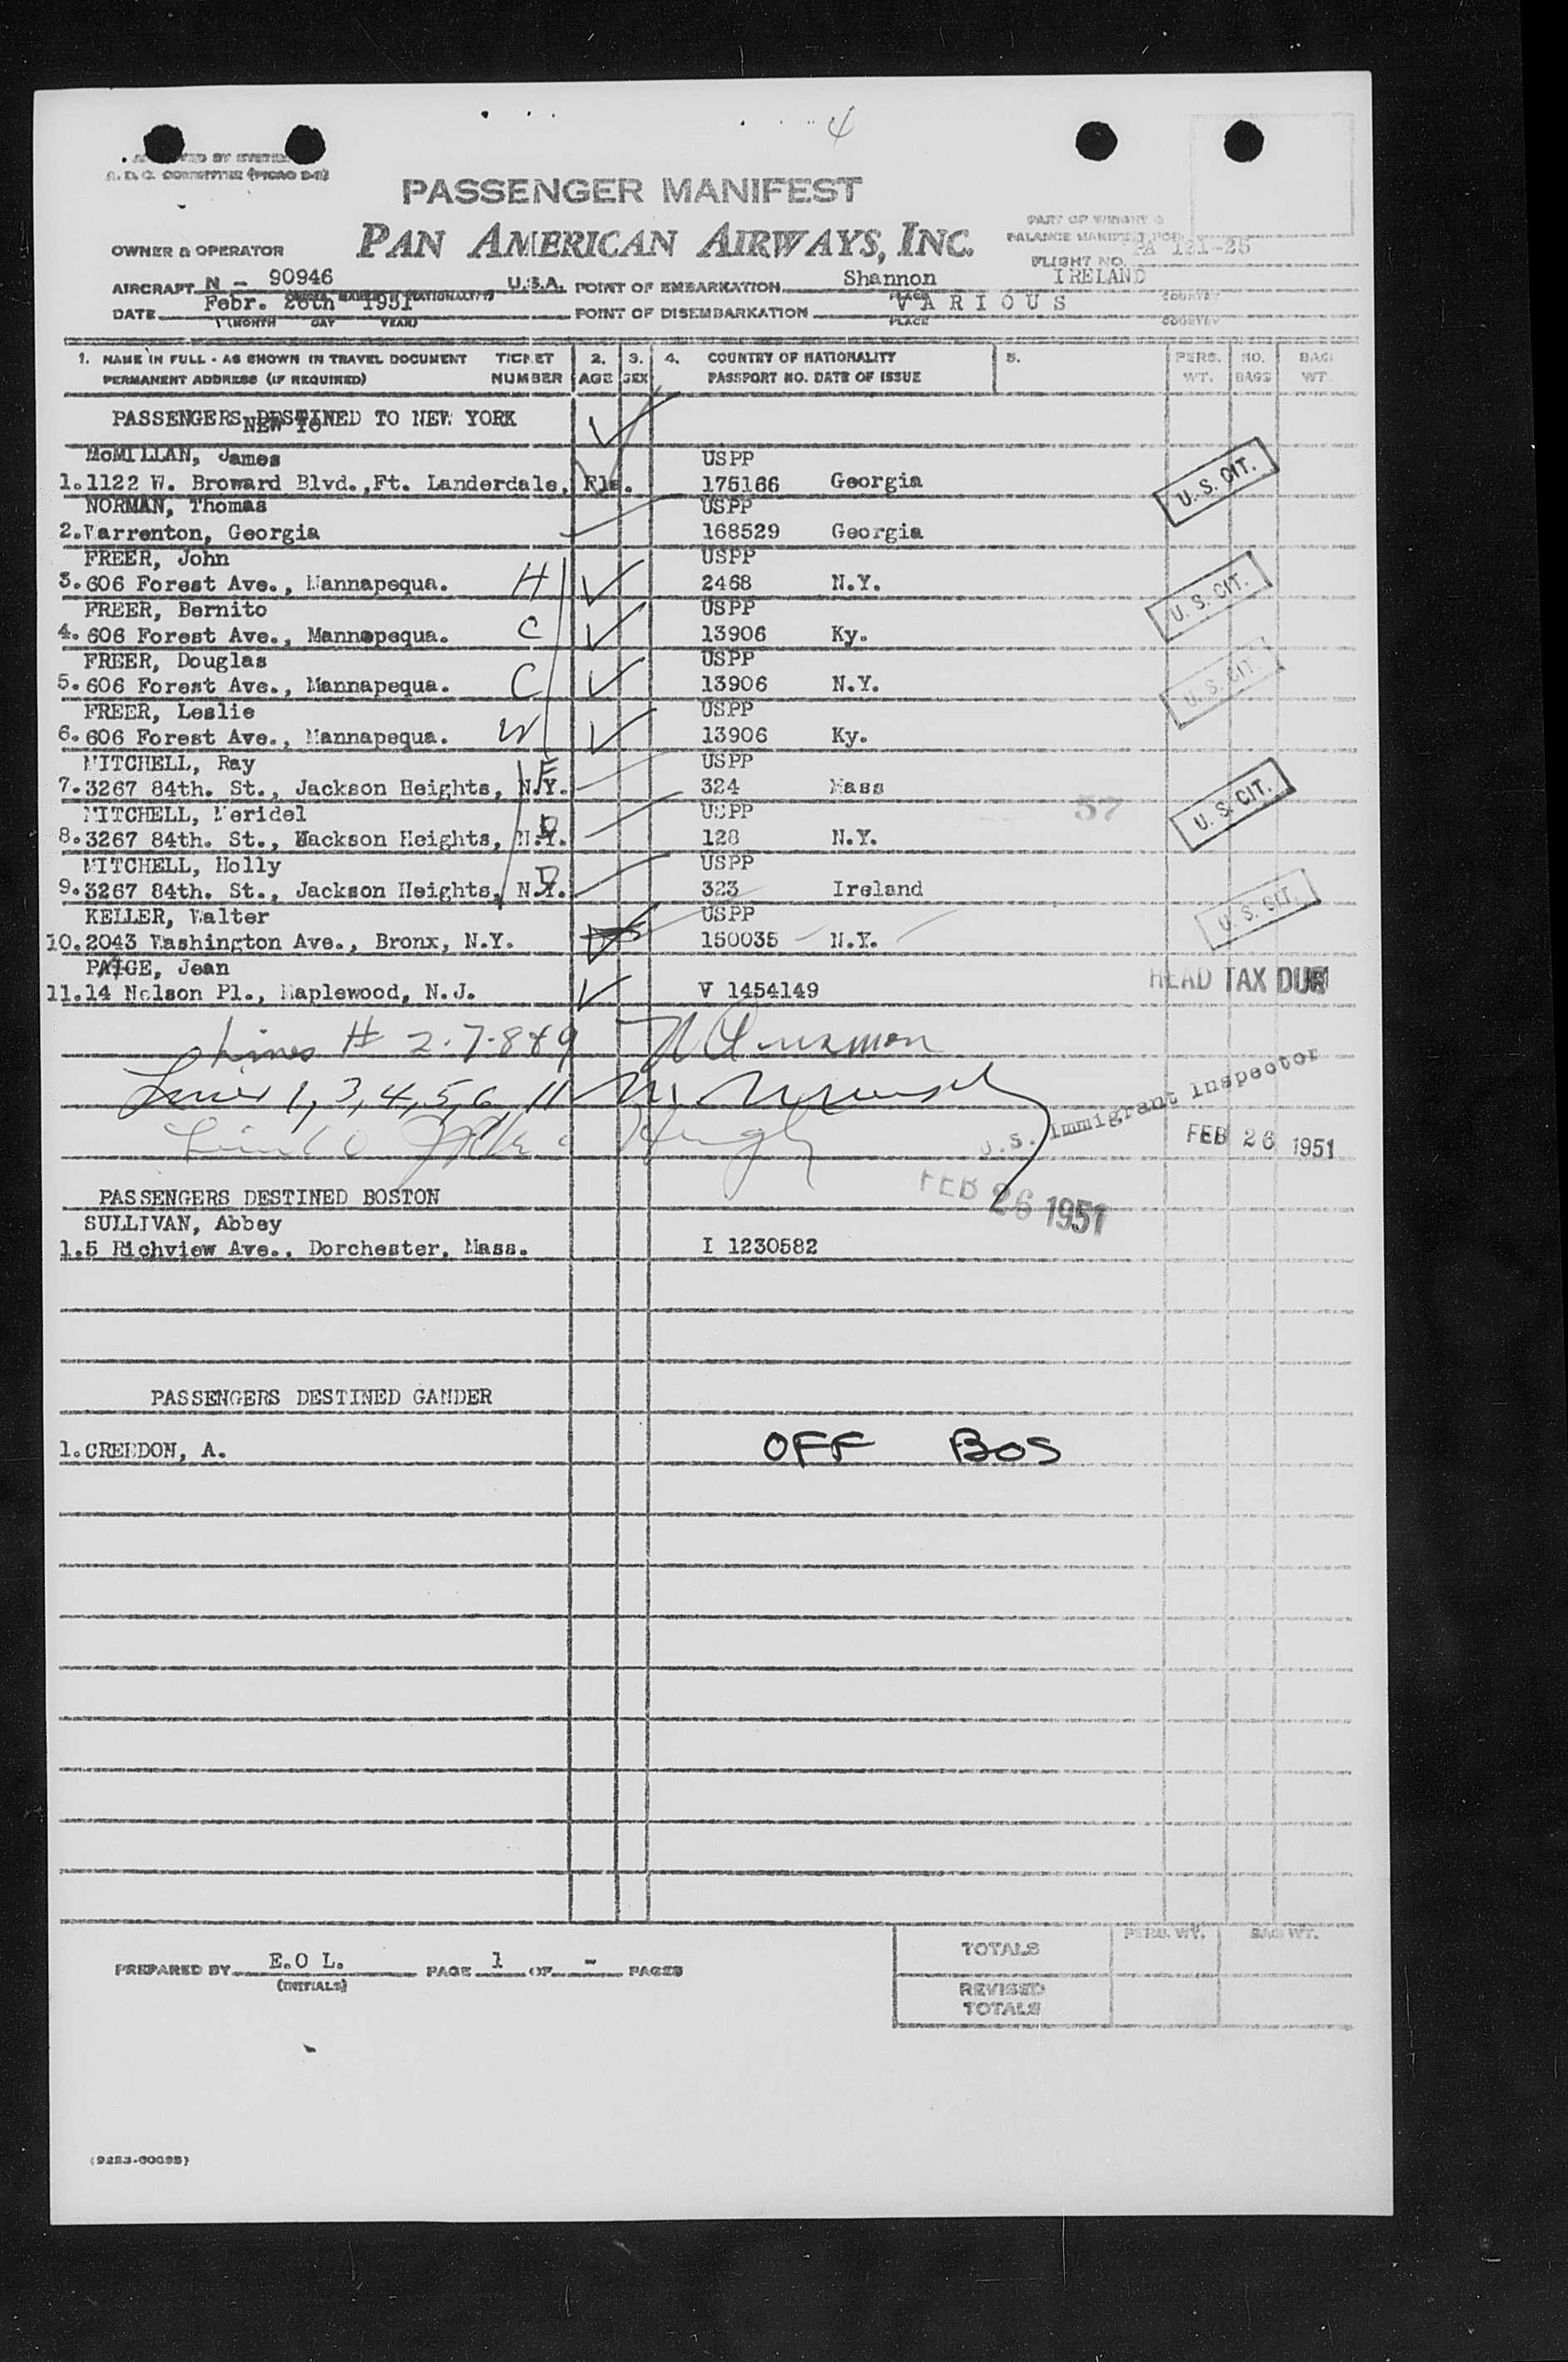 4
PASSENGER MANIFEST
PAN AMERICAN AIRWAYS, INC.
OWNER & OPERATOR
PART OF WEIGHT &
BALANCE MANIFEST FOR
FLIGHT NO. PA 121-25
AIRCRAFT N - 90946 U.S.A. POINT OF EMBARKATION Shannon IRELAND
DATE Febr. 26th 1951 POINT OF DISEMBARKATION VARIOUS
(MONTH DAY YEAR) PLACE COUNTRY
1. NAME IN FULL - AS SHOWN IN TRAVEL DOCUMENT TICKET 2. 3. 4. COUNTRY OF NATIONALITY 5. PERS. NO. BAG
PERMANENT ADDRESS (IF REQUIRED) NUMBER AGE SEX PASSPORT NO. DATE OF ISSUE WT. BAGS WT.
PASSENGERS DESTINED TO NEW YORK
McMILLAN, James USPP
1.1122 W. Broward Blvd.,Ft. Landerdale, Fla. 175166 Georgia U. S. CIT.
NORMAN, Thomas USPP
2.Warrenton, Georgia 168529 Georgia
FREER, John USPP
3.606 Forest Ave., Mannapequa. H 2468 N.Y. U. S. CIT.
FREER, Bernito USPP
4.606 Forest Ave., Mannapequa. C 13906 Ky.
FREER, Douglas USPP
5.606 Forest Ave., Mannapequa. C 13906 N.Y. U. S. CIT.
FREER, Leslie USPP
6.606 Forest Ave., Mannapequa. W 13906 Ky.
MITCHELL, Ray USPP
7.3267 84th. St., Jackson Heights, N.Y. 324 Mass 57 U. S. CIT.
MITCHELL, Meridel USPP
8.3267 84th. St., Hackson Heights, N.Y. 128 N.Y.
MITCHELL, Holly USPP
9.3267 84th. St., Jackson Heights, N.Y. 323 Ireland U. S. CIT.
KELLER, Walter USPP
10.2043 Washington Ave., Bronx, N.Y. 150035 N.Y.
PAIGE, Jean HEAD TAX DUE
11.14 Nelson Pl., Maplewood, N.J. V 1454149
Lines # 2-7-8&9
Lines 1, 3, 4, 5, 6, 11
U.S. Immigrant Inspector
FEB 26 1951
FEB 26 1951
PASSENGERS DESTINED BOSTON
SULLIVAN, Abbey
1.5 Richview Ave., Dorchester, Mass. I 1230582
PASSENGERS DESTINED GANDER
1.CREEDON, A. OFF BOS
TOTALS PERS. WT. BAG WT.
PREPARED BY E.O L. PAGE 1 OF - PAGES
(INITIALS)
REVISED
TOTALS